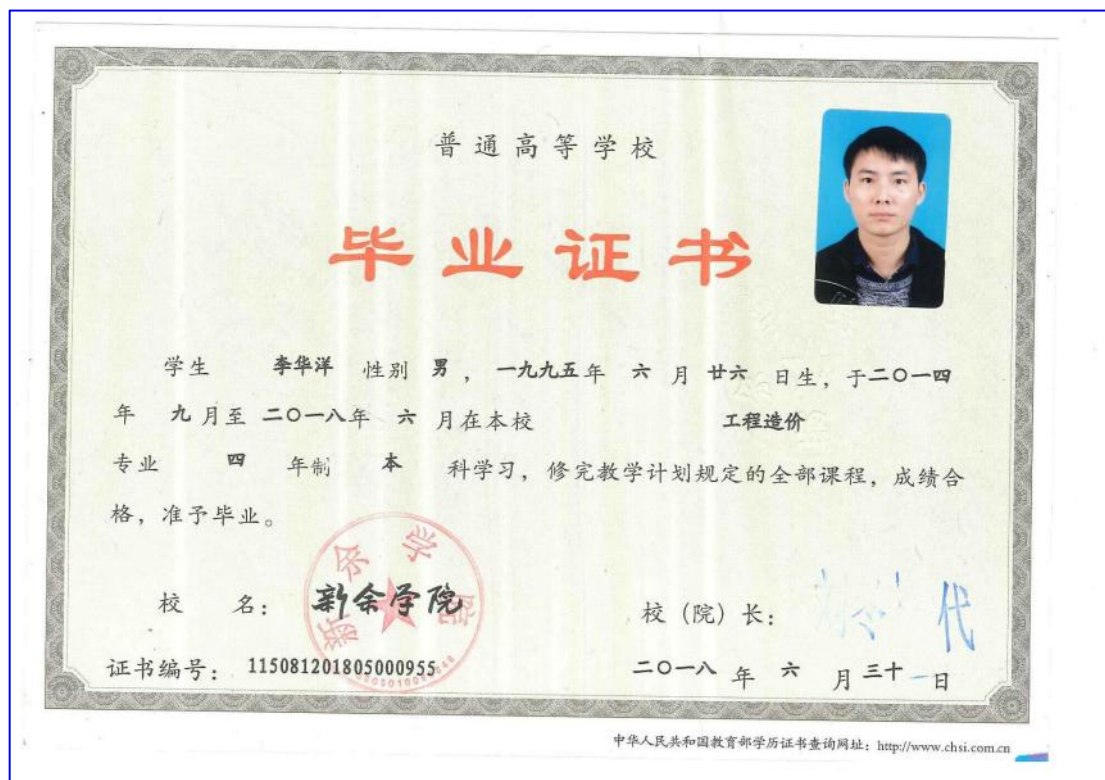 普通高等学校
毕业证书
学生 李华洋 性别 男，一九九五年 六 月 廿六 日生，于二〇一四
年 九月至 二〇一八年 六 月在本校 工程造价
专业 四 年制 本 科学习，修完教学计划规定的全部课程，成绩合
格，准予毕业。
新余学院
校 名： 新余学院
校（院）长：
证书编号： 115081201805000955
二〇一八 年 六 月三十日
中华人民共和国教育部学历证书查询网址：http://www.chsi.com.cn